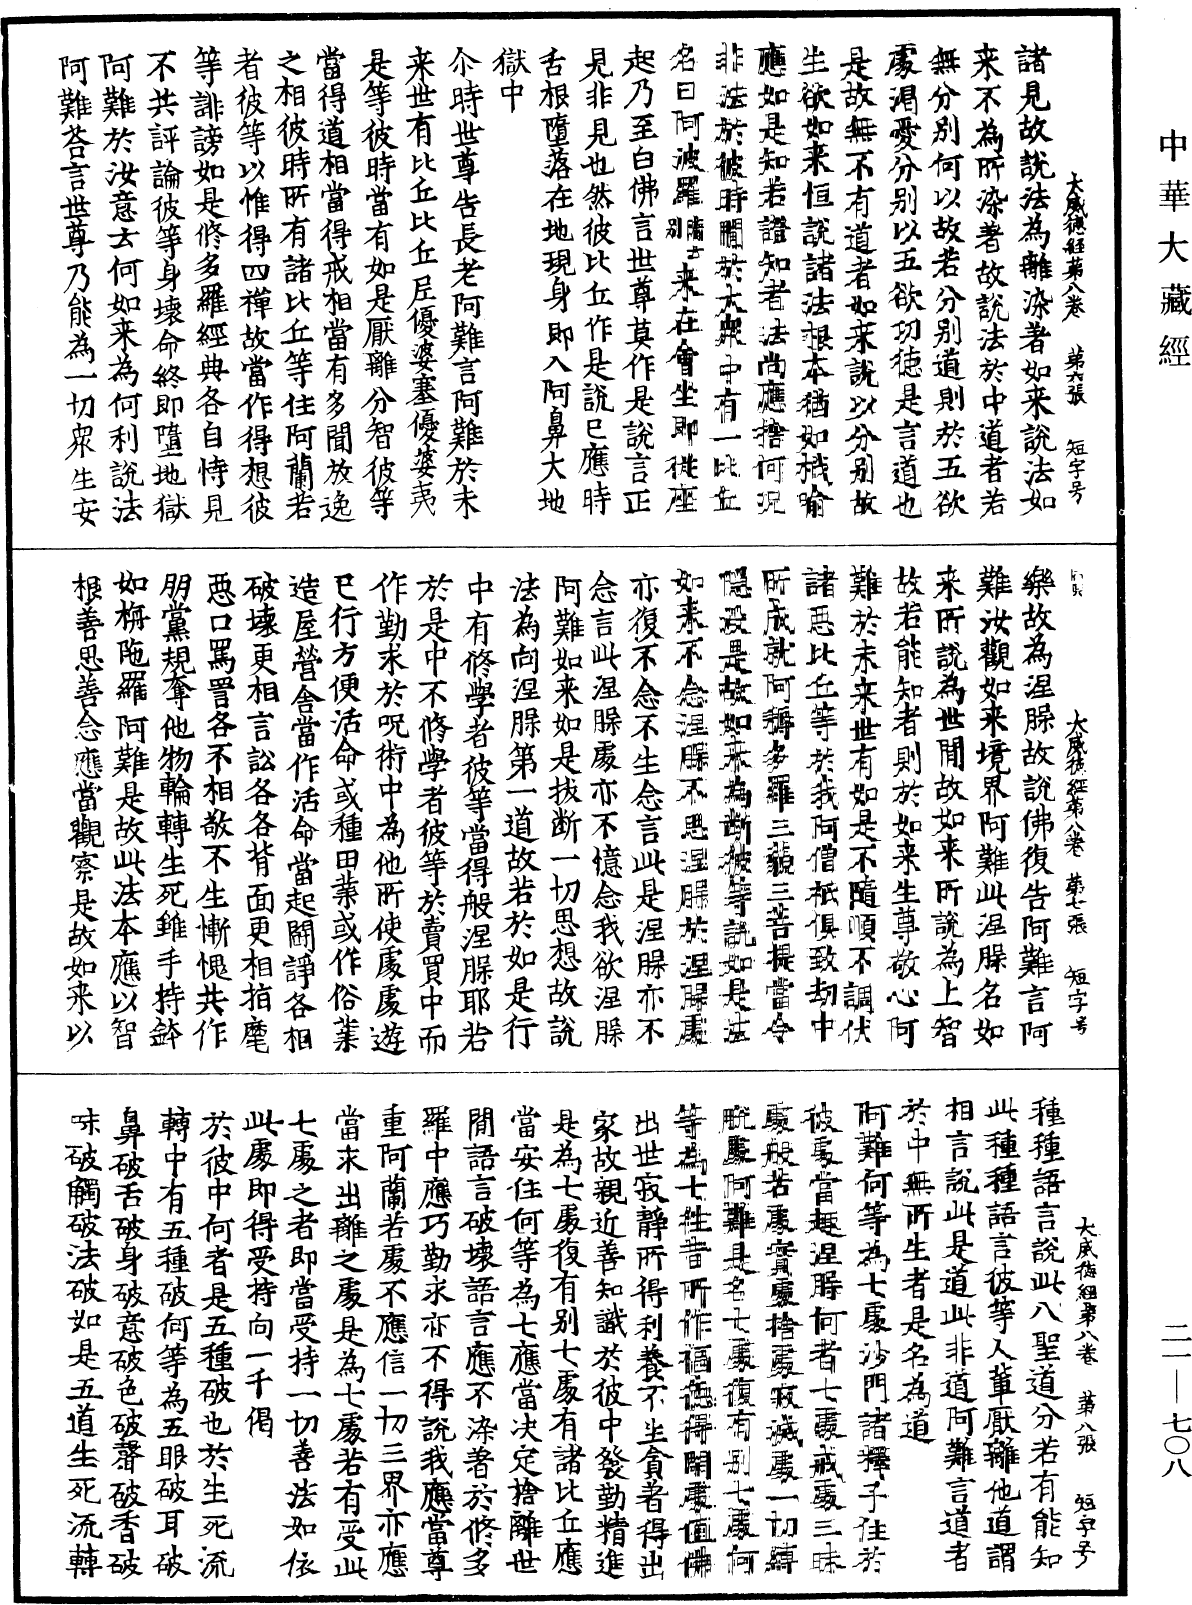 中華大藏經
大威德經第八卷 第六張 短字号
諸見故說法為離染著如来說法如
来不為所染著故說法於中道者若
無分別何以故若分別道則於五欲
處渴愛分別以五欲功德是言道也
是故無不有道者如来說以分別故
生欲如来恒說諸法根本猶如栰喻
應如是知若證知者法尚應捨何況
非法於彼時閒於大衆中有一比丘
名曰阿波羅来在會坐即從座
起乃至白佛言世尊莫作是說言正
見非見也然彼比丘作是說已應時
舌根墮落在地現身即入阿鼻大地
獄中
尒時世尊告長老阿難言阿難於未
来世有比丘比丘尼優婆塞優婆夷
是等彼時當有如是厭離分智彼等
當得道相當得戒相當有多聞放逸
之相彼時所有諸比丘等住阿蘭若
者彼等以惟得四禪故當作得想彼
等誹謗如是修多羅經典各自恃見
不共評論彼等身壞命終即墮地獄
阿難於汝意云何如来為何利說法
阿難荅言世尊乃能為一切衆生安
大威德經第八卷 第七張 短字号
樂故為涅脲故說佛復告阿難言阿
難汝觀如来境界阿難此涅脲名如
来所說為世閒故如来所說為上智
故若能知者則於如来生尊敬心阿
難於未来世有如是不隨順不調伏
諸惡比丘等於我阿僧祇俱致劫中
所成就阿耨多羅三藐三菩提當令
隱沒是故如来為斷彼等說如是法
如来不念涅脲不思涅脲於涅脲處
亦復不念不生念言此是涅脲亦不
念言此涅脲處亦不憶念我欲涅脲
阿難如来如是拔断一切思想故說
法為向涅脲第一道故若於如是行
中有修學者彼等當得般涅脲耶若
於是中不修學者彼等於賣買中而
作勤求於呪術中為他所使處處遊
已行方便活命或種田業或作俗業
造屋營舍當作活命當起鬪諍各相
破壞更相言訟各各背面更相拍麾
惡口罵詈各不相敬不生慚愧共作
朋黨規奪他物輪轉生死雖手持鉢
如栴陁羅阿難是故此法本應以智
根善思善念應當觀察是故如来以
大威德經第八卷 第八張 短字号
種種語言說此八聖道分若有能知
此種種語言彼等人輩厭離他道謂
相言說此是道此非道阿難言道者
於中無所生者是名為道
阿難何等為七處沙門諸釋子住於
彼處當趣涅脲何者七處戒處三昧
處般若處實處捨處寂滅處一切縛
脫處阿難是名七處復有別七處何
等為七往昔所作福德得閑處值佛
出世寂靜所得利養不生貪著得出
家故親近善知識於彼中發勤精進
是為七處復有別七處有諸比丘應
當安住何等為七應當決定捨離世
閒語言破壞語言應不染著於修多
羅中應巧勤求亦不得說我應當尊
重阿蘭若處不應信一切三界亦應
當求出離之處是為七處若有受此
七處之者即當受持一切善法如依
此處即得受持向一千偈
於彼中何者是五種破也於生死流
轉中有五種破何等為五眼破耳破
鼻破舌破身破意破色破聲破香破
味破觸破法破如是五道生死流轉
二一—七〇八